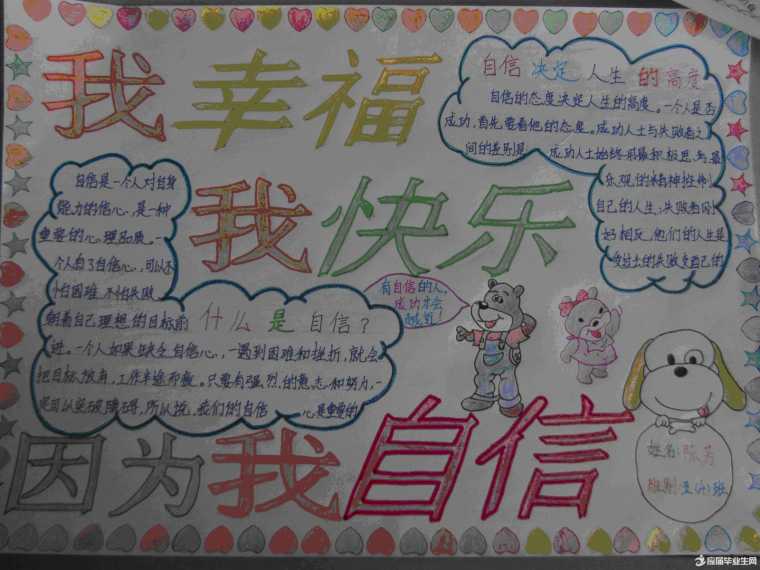 我幸福
自信 决定 人生 的 高度
自信的态度决定人生的高度。一个人是否
成功,首先要看他的态度。成功人士与失败者之
间的差别是 成功人士始终用最积极思考、最
乐观的精神控制
自己的人生;失败者刚
好相反,他们的人生是
我快乐
自信是一个人对自身
能力的信心,是一种
重要的心理品质。一
个人有了自信心,可以不
怕困难,不怕失败,
朝着自己理想的目标前
什么是自信?
进。一个人如果缺乏自信心,一遇到困难和挫折,就会
把目标放弃,工作半途而废。只要有强烈的意志和努力,一
定可以突破障碍,所以说,我们的自信 心是重要的!
有自信的人,
成功才会
因为我自信
姓名:陈芳
班别:五(4)班
应届毕业生网